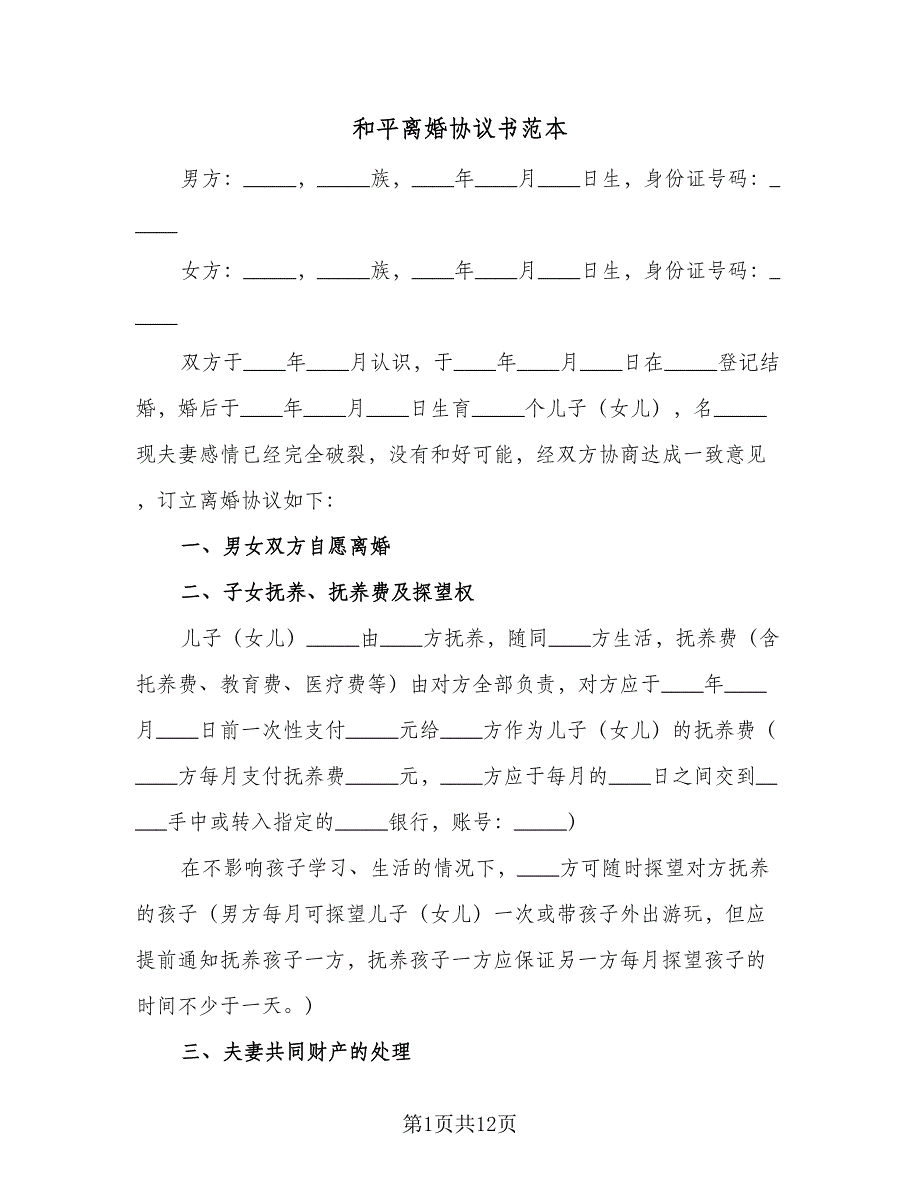 和平离婚协议书范本
男方：_____，_____族，____年____月____日生，身份证号码：_
____
女方：_____，_____族，____年____月____日生，身份证号码：_
____
双方于____年____月认识，于____年____月____日在_____登记结
婚，婚后于____年____月____日生育_____个儿子（女儿），名_____
现夫妻感情已经完全破裂，没有和好可能，经双方协商达成一致意见
，订立离婚协议如下：
一、男女双方自愿离婚
二、子女抚养、抚养费及探望权
儿子（女儿）_____由____方抚养，随同____方生活，抚养费（含
托养费、教育费、医疗费等）由对方全部负责，对方应于____年____
月____日前一次性支付_____元给____方作为儿子（女儿）的抚养费（
____方每月支付抚养费_____元，____方应于每月的____日之间交到__
___手中或转入指定的_____银行，账号：_____）
在不影响孩子学习、生活的情况下，____方可随时探望对方抚养
的孩子（男方每月可探望儿子（女儿）一次或带孩子外出游玩，但应
提前通知抚养孩子一方，抚养孩子一方应保证另一方每月探望孩子的
时间不少于一天。）
三、夫妻共同财产的处理
第1页共12页